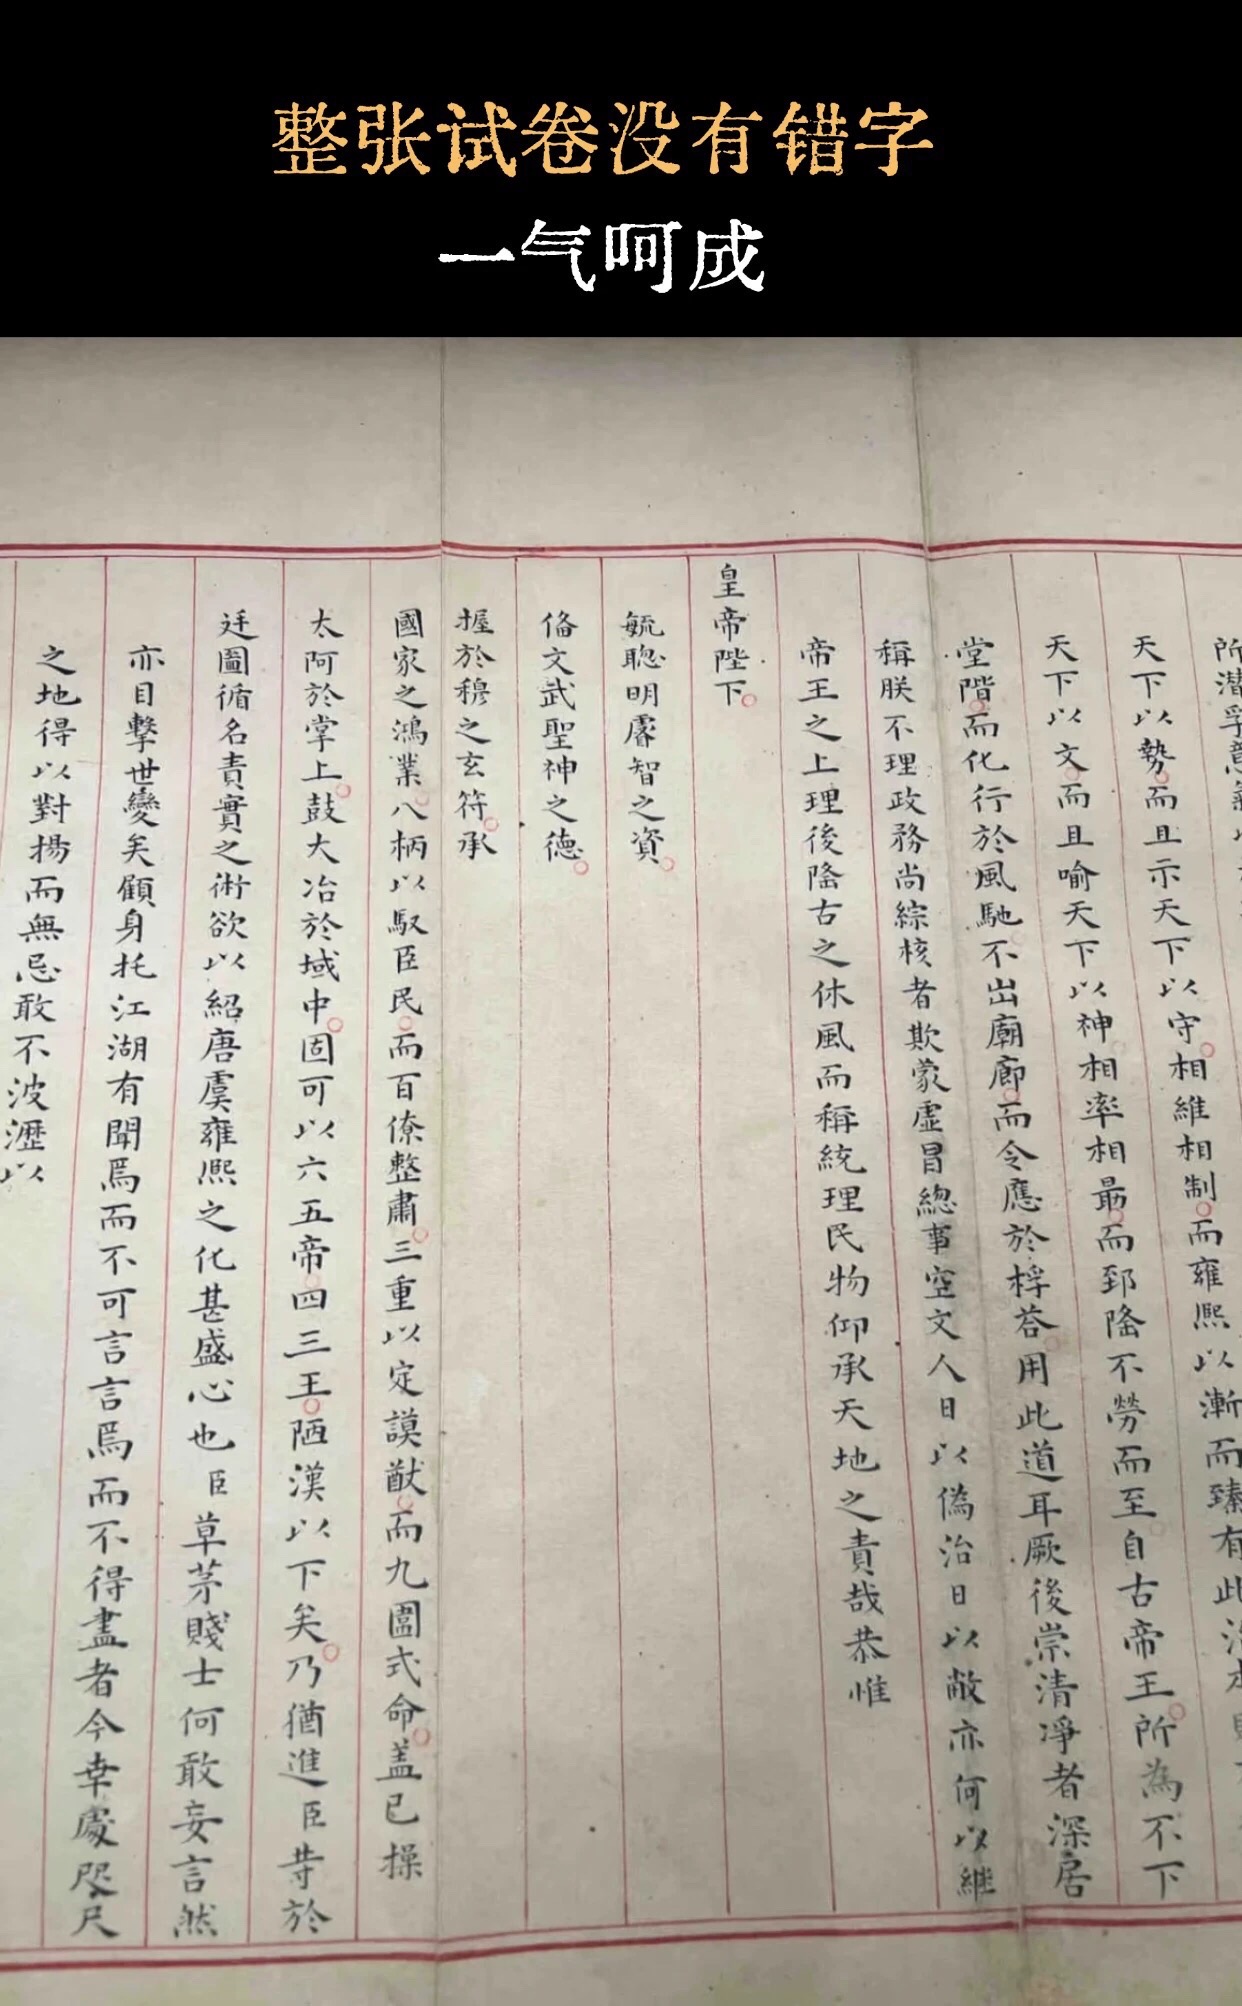 整张试卷没有错字
一气呵成
天下以勢而且示天下以守相維相制而雍熙以漸而臻有此
天下以文而且喻天下以神相率相最而郅隆不勞而至自古帝王所為不下
堂階而化行於風馳不出廟廊而令應於桴荅用此道耳厥後崇清凈者深居
稱朕不理政務尚綜核者欺蒙虛冒總事空文人日以偽治日以敝亦何以継
帝王之上理後隆古之休風而稱統理民物仰承天地之責哉恭惟
皇帝陛下
毓聰明睿智之資
俻文武聖神之德
握於穆之玄符承
國家之鴻業八柄以馭臣民而百僚整肅三重以定謨猷而九圍式命盖已操
太阿於掌上鼓大冶於域中固可以六五帝四三王陋漢以下矣乃猶進臣等於
廷圖循名責實之術欲以紹唐虞雍熙之化甚盛心也臣草茅賤士何敢妄言然
亦目擊世變矣顧身托江湖有聞焉而不可言言焉而不得盡者今幸處咫尺
之地得以對揚而無忌敢不披瀝以